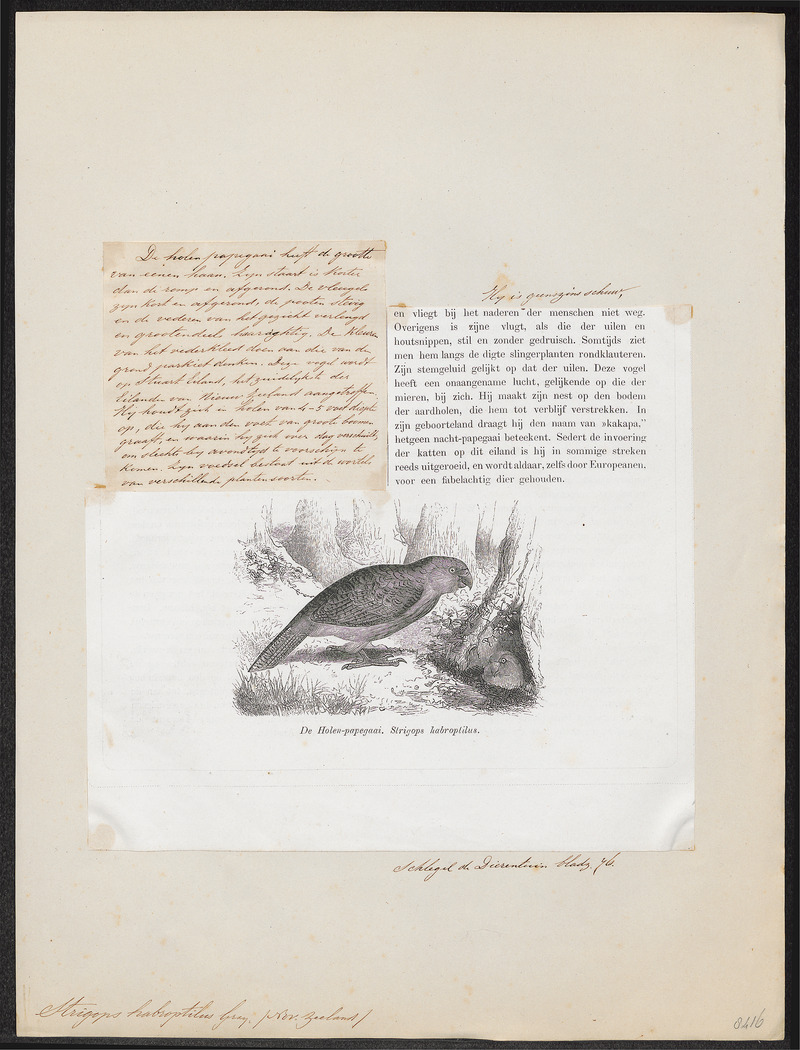 De holen papegaai heeft de grootte
van eenen haan. Zijn staart is korter
dan de romp en afgerond. De vleugels
zijn kort en afgerond, de pooten stevig
en de vederen van het gezicht verlengd
en grootendeels haarachtig. De kleuren
van het vederkleed doen aan die van de
grond parkiet denken. Deze vogel wordt
op Stuart Eiland, het zuidelijkste der
Eilanden van Nieuw Zeeland aangetroffen.
Hij houdt zich in holen van 4-5 voet diepte
op, die hij aan den voet van groote boomen
graaft, en waarin hij zich over dag verschuilt,
om slechts bij avondtijd te voorschijn te
komen. Zijn voedsel bestaat uit de wortels
van verschillende plantensoorten.
Hij is geenszins schuw,
en vliegt bij het naderen der menschen niet weg.
Overigens is zijne vlugt, als die der uilen en
houtsnippen, stil en zonder gedruisch. Somtijds ziet
men hem langs de digte slingerplanten rondklauteren.
Zijn stemgeluid gelijkt op dat der uilen. Deze vogel
heeft een onaangename lucht, gelijkende op die der
mieren, bij zich. Hij maakt zijn nest op den bodem
der aardholen, die hem tot verblijf verstrekken. In
zijn geboorteland draagt hij den naam van »kakapa,"
hetgeen nacht-papegaai beteekent. Sedert de invoering
der katten op dit eiland is hij in sommige streken
reeds uitgeroeid, en wordt aldaar, zelfs door Europeanen,
voor een fabelachtig dier gehouden.
De Holen-papegaai. Strigops habroptilus.
Schlegel de Dierentuin bladz. 76.
Strigops habroptilus Gray. (Nov. Zeeland)
8416